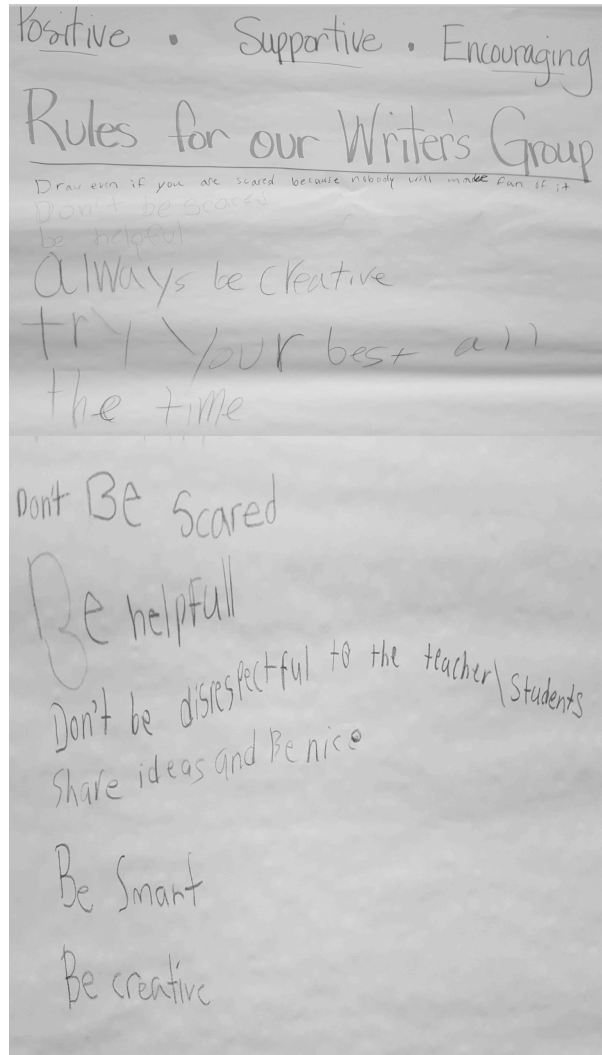 Positive • Supportive • Encouraging
Rules for our Writer's Group
Draw even if you are scared because nobody will make fun of it
Don't be scared
be helpful
always be creative
try your best all
the time
Don't Be Scared
Be helpfull
Don't be disrespectful to the teacher\Students
Share ideas and Be nice
Be Smart
Be creative